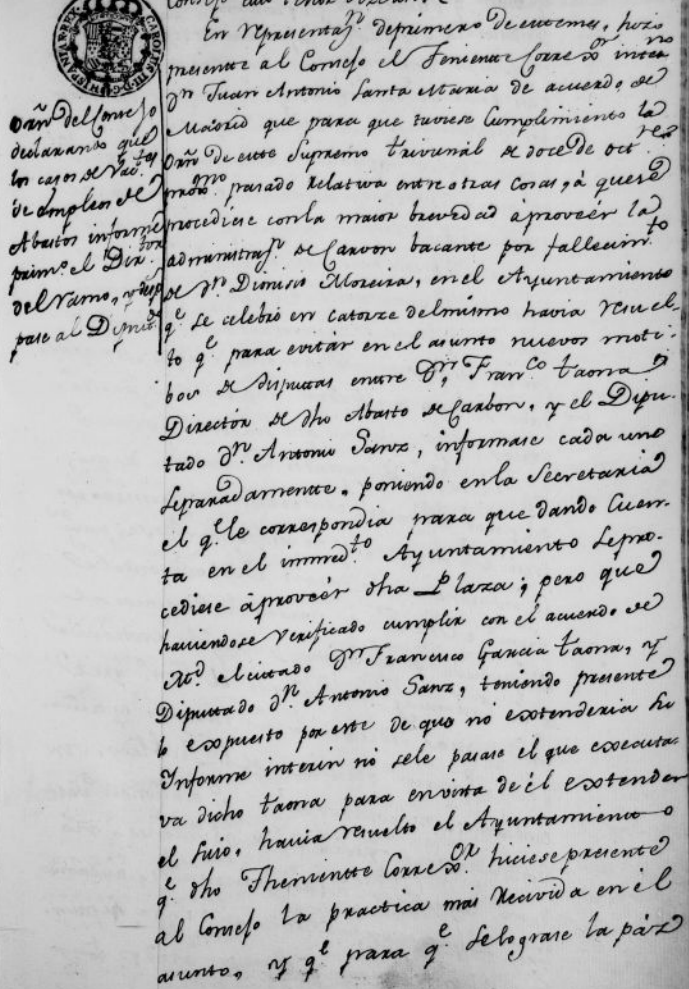 CAROLVS III D G HISPANIAR REX
Orñ del Consejo
declarando que
los casos de Vac.tes
de empleos de
Abastos informe
prim.o el Dir.tor
del ramo, y desp
pase al Diput.do
En representaz.n de primero de este mes, hizo
presentte al Consejo el Teniente Correx.or inter.no
D.n Juan Antonio Santa Maria de acuerdo de
Madrid que para que tuviese Cumplimiento la
Orñ de este Supremo trivunal de doce de oct.re
prox.mo pasado Relativa entre otras cosas, â que se
procediese con la maior brevedad â proveér la
administraz.n de Carvon bacante por fallecim.to
de d.n Dionisio Moreira, en el Ayuntamiento
q.e se celebró en catorze del mismo havia resuel-
to q.e para evitar en el asunto nuevos moti-
bos de disputtas entre D.n Fran.co taona
Director de dho Abasto de Carbon, y el Dipu-
tado D.n Antonio Sanz, informase cada uno
Separadamentte, poniendo en la Secretaria
el q.e le correspondia para que dando Cuen-
ta en el inmed.to Ayuntamiento se pro-
cediese â proveér dha Plaza; pero que
haviendose Verificado cumplir con el acuerdo de
M.d el citado D.n Francisco Garcia taona, y
Diputtado d.n Antonio Sanz, teniendo presente
lo expuesto por este de que no extenderia su
Informe interin nó sele pasase el que executa-
va dicho taona para en vista de él extender
el suio, havia resuelto el Ayuntamiento
q.e dho Thenientte Correx.or hiciese presente
al Consejo la practica mas recivida en él
asunto, y q.e para q.e se lograse la páz